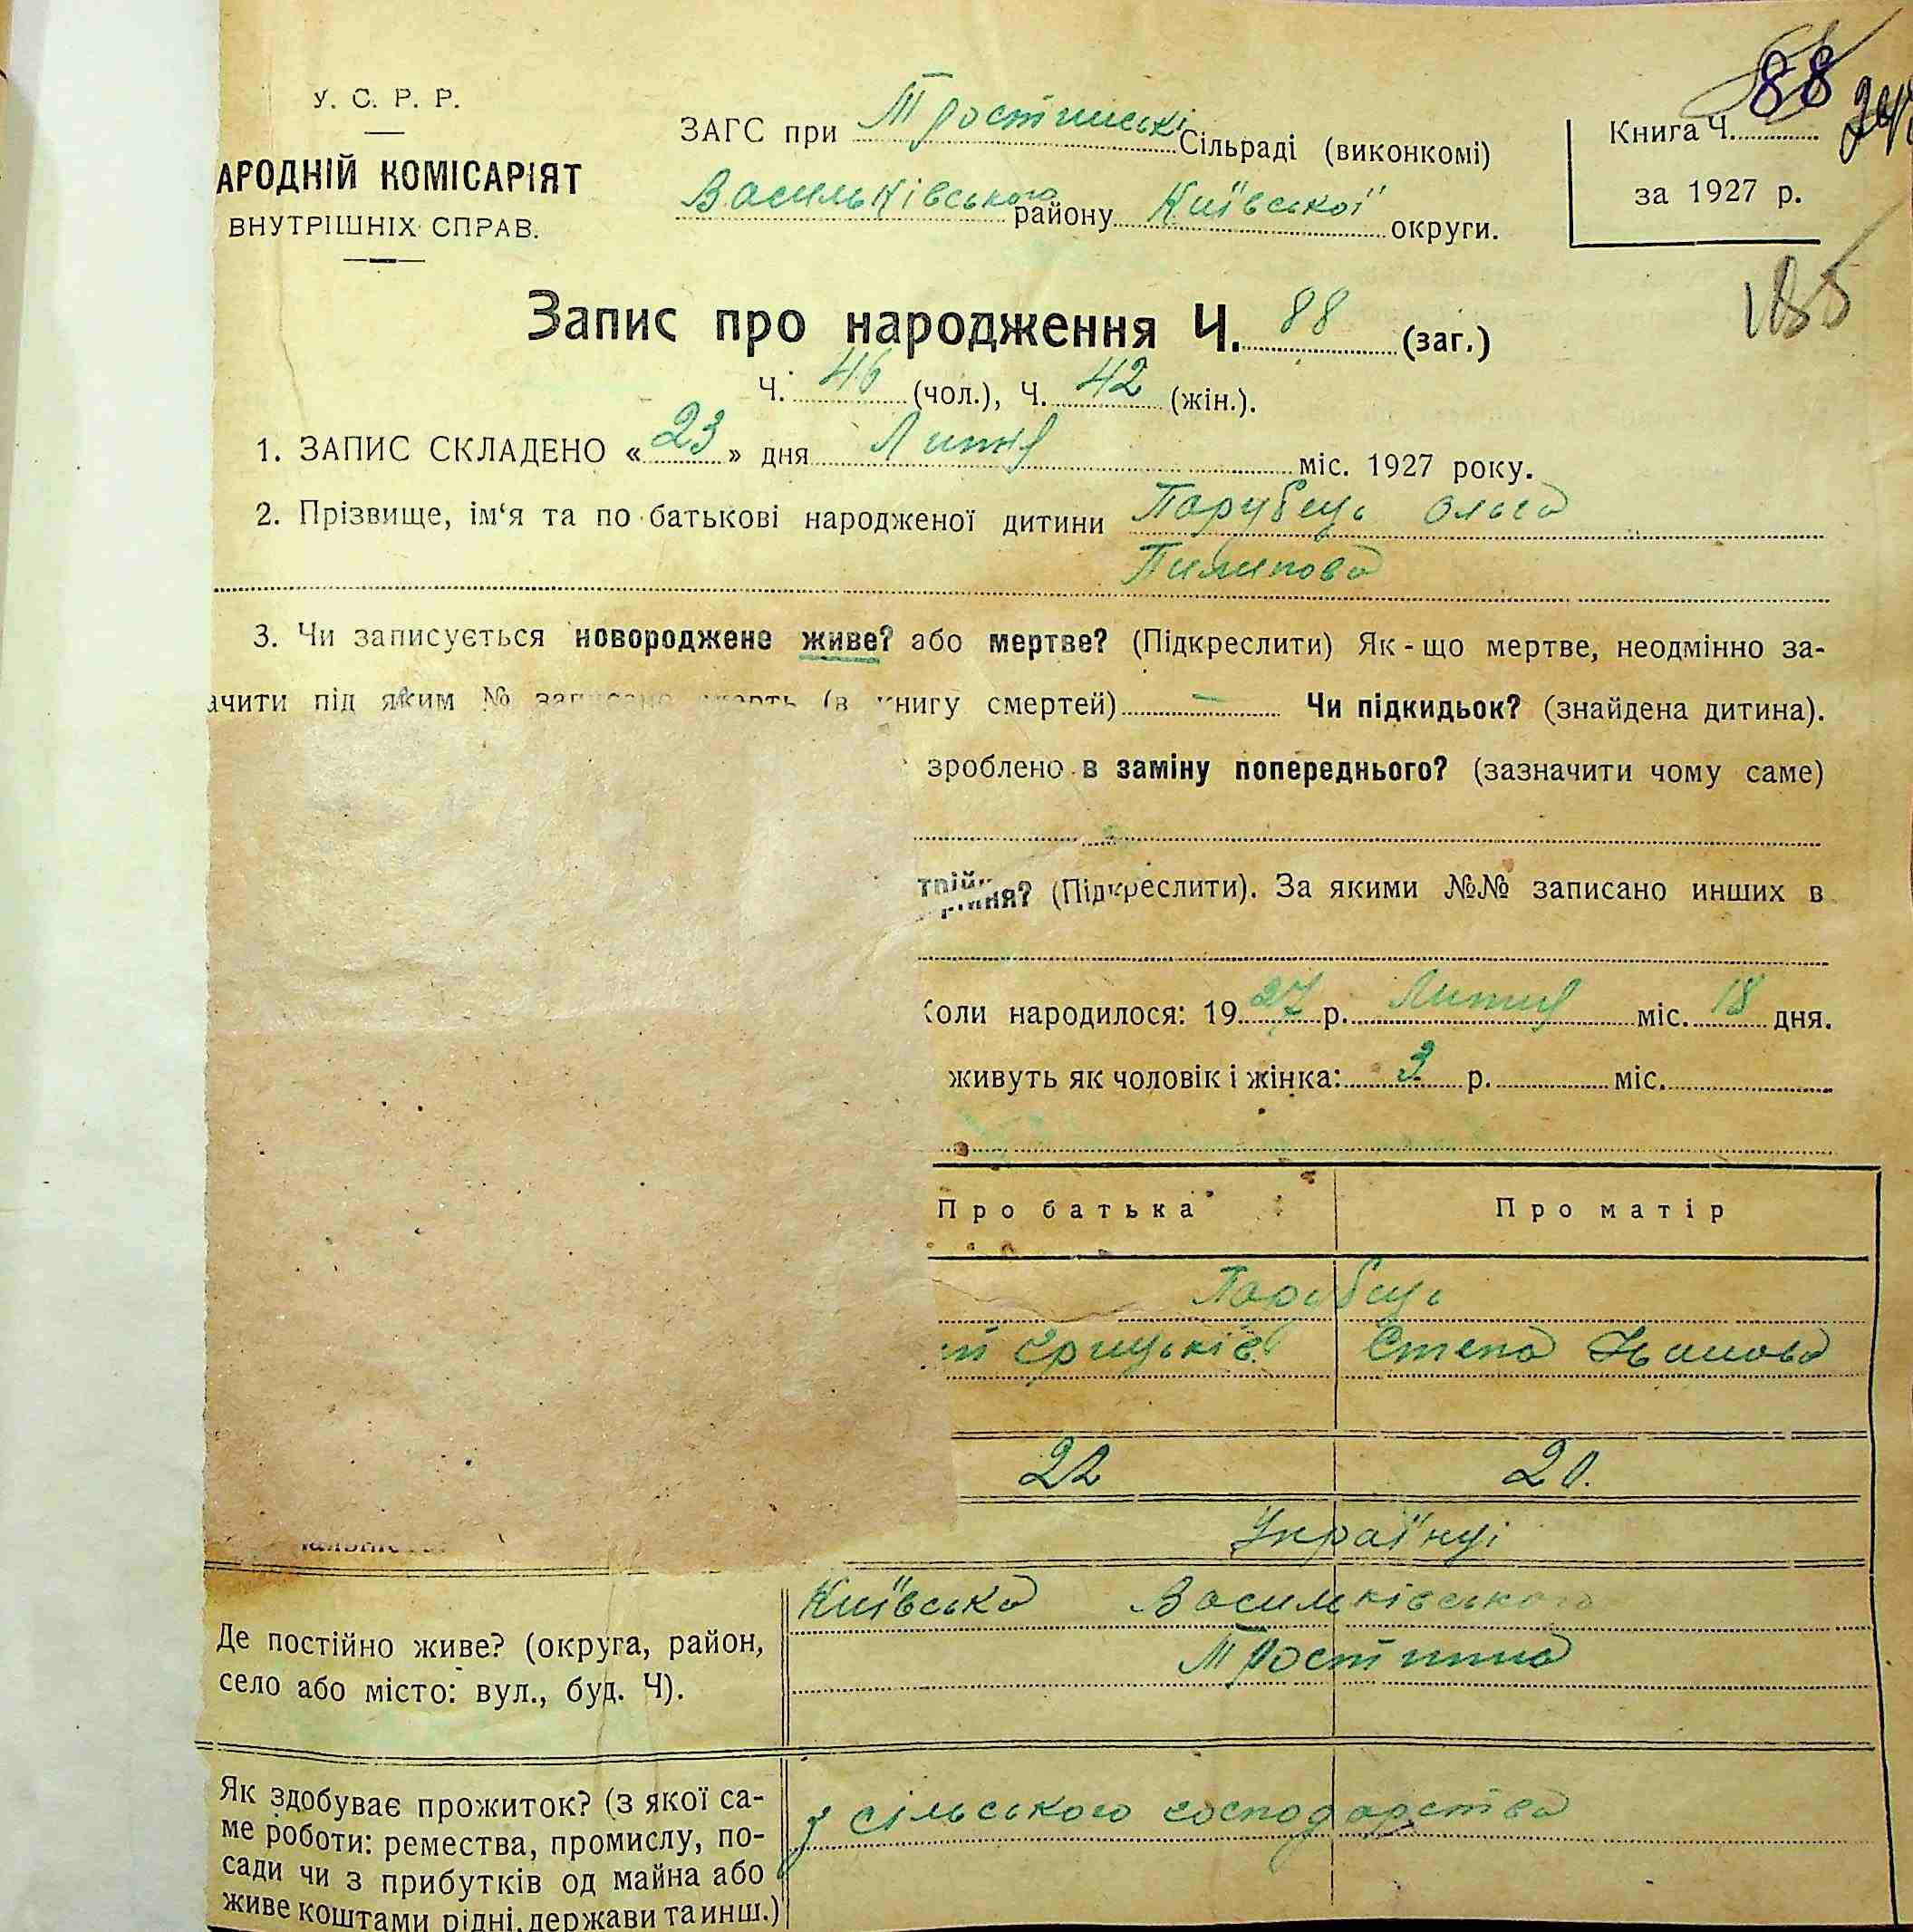 88
У. С. Р. Р.
ЗАГС при Тростинські Сільраді (виконкомі)
Книга Ч.
АРОДНІЙ КОМІСАРІЯТ
Васильківського району Київської округи.
за 1927 р.
ВНУТРІШНІХ СПРАВ.
185
Запис про народження Ч. 88 (заг.)
Ч. 46 (чол.), Ч. 42 (жін.).
1. ЗАПИС СКЛАДЕНО « 23 » дня Липня міс. 1927 року.
2. Прізвище, ім‘я та по батькові народженої дитини Парубець Ольга
Пилипова
3. Чи записується новороджене живе? або мертве? (Підкреслити) Як-що мертве, неодмінно за-
ачити під яким № записано смерть (в книгу смертей) — Чи підкидьок? (знайдена дитина).
зроблено в заміну попереднього? (зазначити чому саме)
(Підкреслити). За якими №№ записано инших в
Коли народилося: 1927 р. Липня міс. 18 дня.
живуть як чоловік і жінка: 3 р. міс.
Про батька Про матір
Парубець
Грицьків Степа Іванова
22 20.
Українці
Київська Васильківського
Де постійно живе? (округа, район,
Тростинка
село або місто: вул., буд. Ч).
Як здобуває прожиток? (з якої са-
з сільського господарства
ме роботи: ремества, промислу, по-
сади чи з прибутків од майна або
живе коштами рідні, держави та инш.)